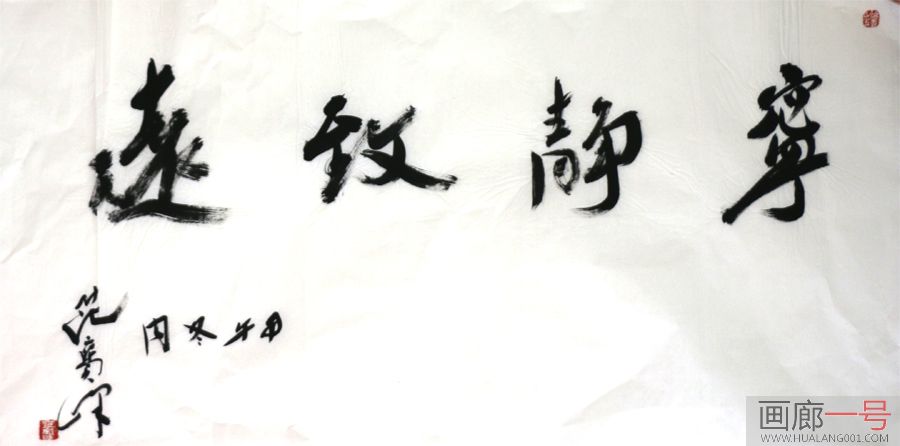 寧静致遠
甲午冬月
画廊一号
WWW.HUALANG001.COM